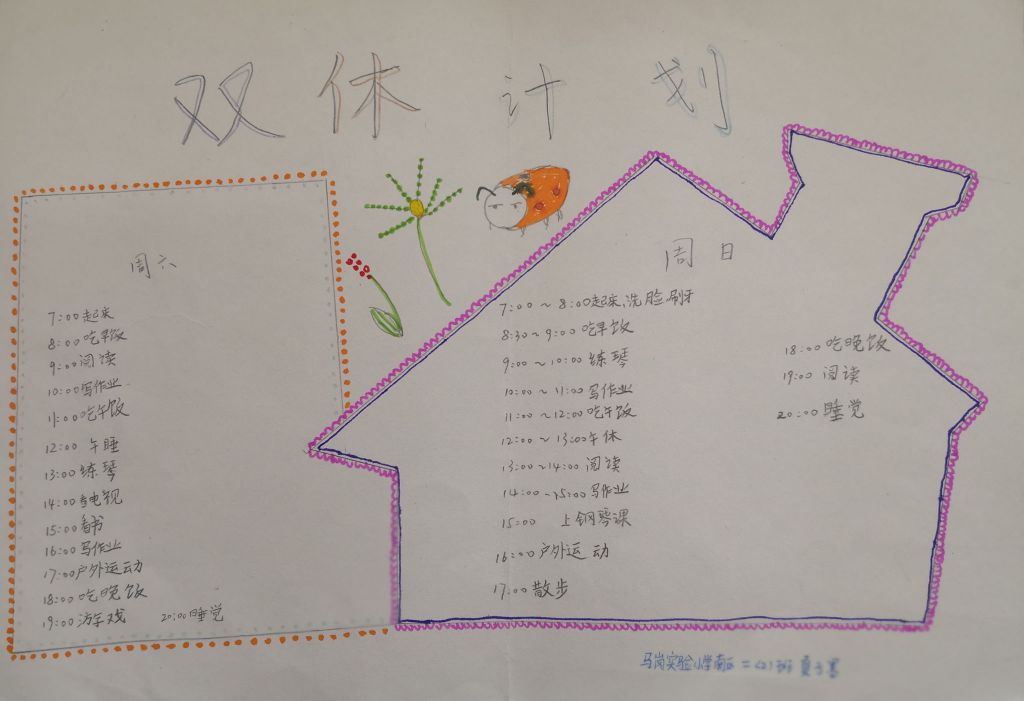 双休计划
周六
7:00起来
8:00吃早饭
9:00阅读
10:00写作业
11:00吃午饭
12:00 午睡
13:00练琴
14:00看电视
15:00看书
16:00写作业
17:00户外运动
18:00吃晚饭
19:00游戏 20:00睡觉
周日
7:00~8:00起来,洗脸刷牙
8:30~9:00吃早饭
9:00~10:00练琴
10:00~11:00写作业
11:00~12:00吃午饭
12:00~13:00午休
13:00~14:00阅读
14:00~15:00写作业
15:00 上钢琴课
16:00户外运动
17:00散步
18:00吃晚饭
19:00 阅读
20:00睡觉
马岗实验小学南区二(2)班 夏